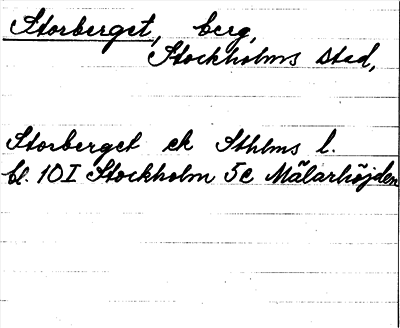 Storberget, berg,
Stockholms stad,
Storberget ek Sthlms l.
bl. 10I Stockholm 5c Mälarhöjden